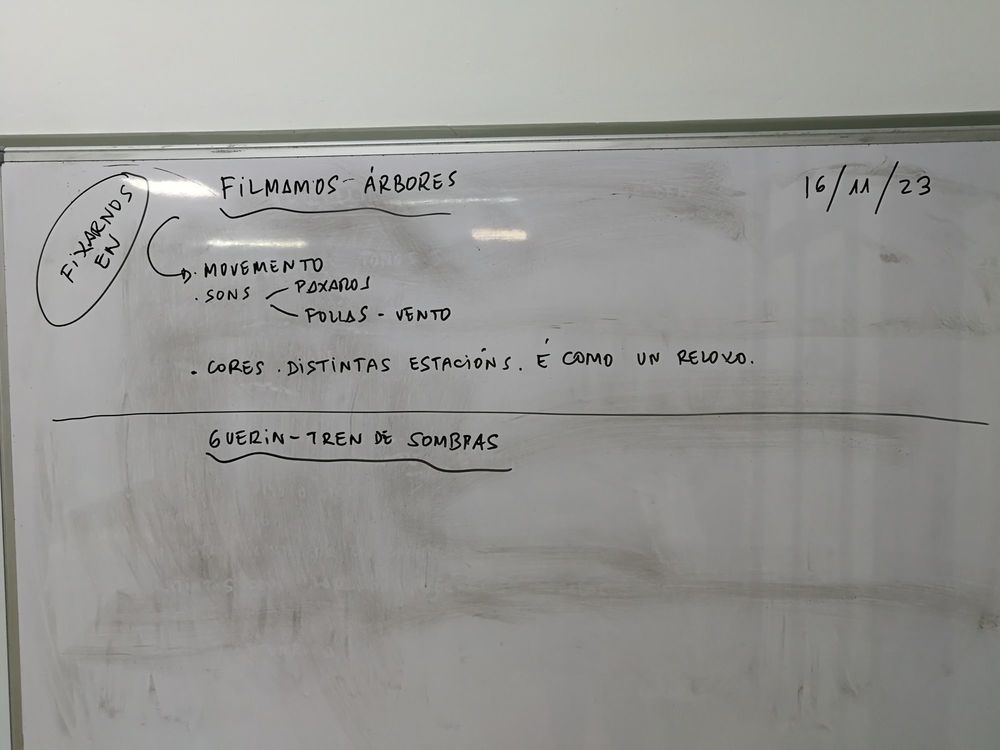 FIXARNOS
EN
FILMAMOS - ÁRBORES
16/11/23
. MOVEMENTO
. SONS
PAXAROS
FOLLAS - VENTO
. CORES . DISTINTAS ESTACIÓNS. É COMO UN RELOXO.
GUERIN - TREN DE SOMBRAS